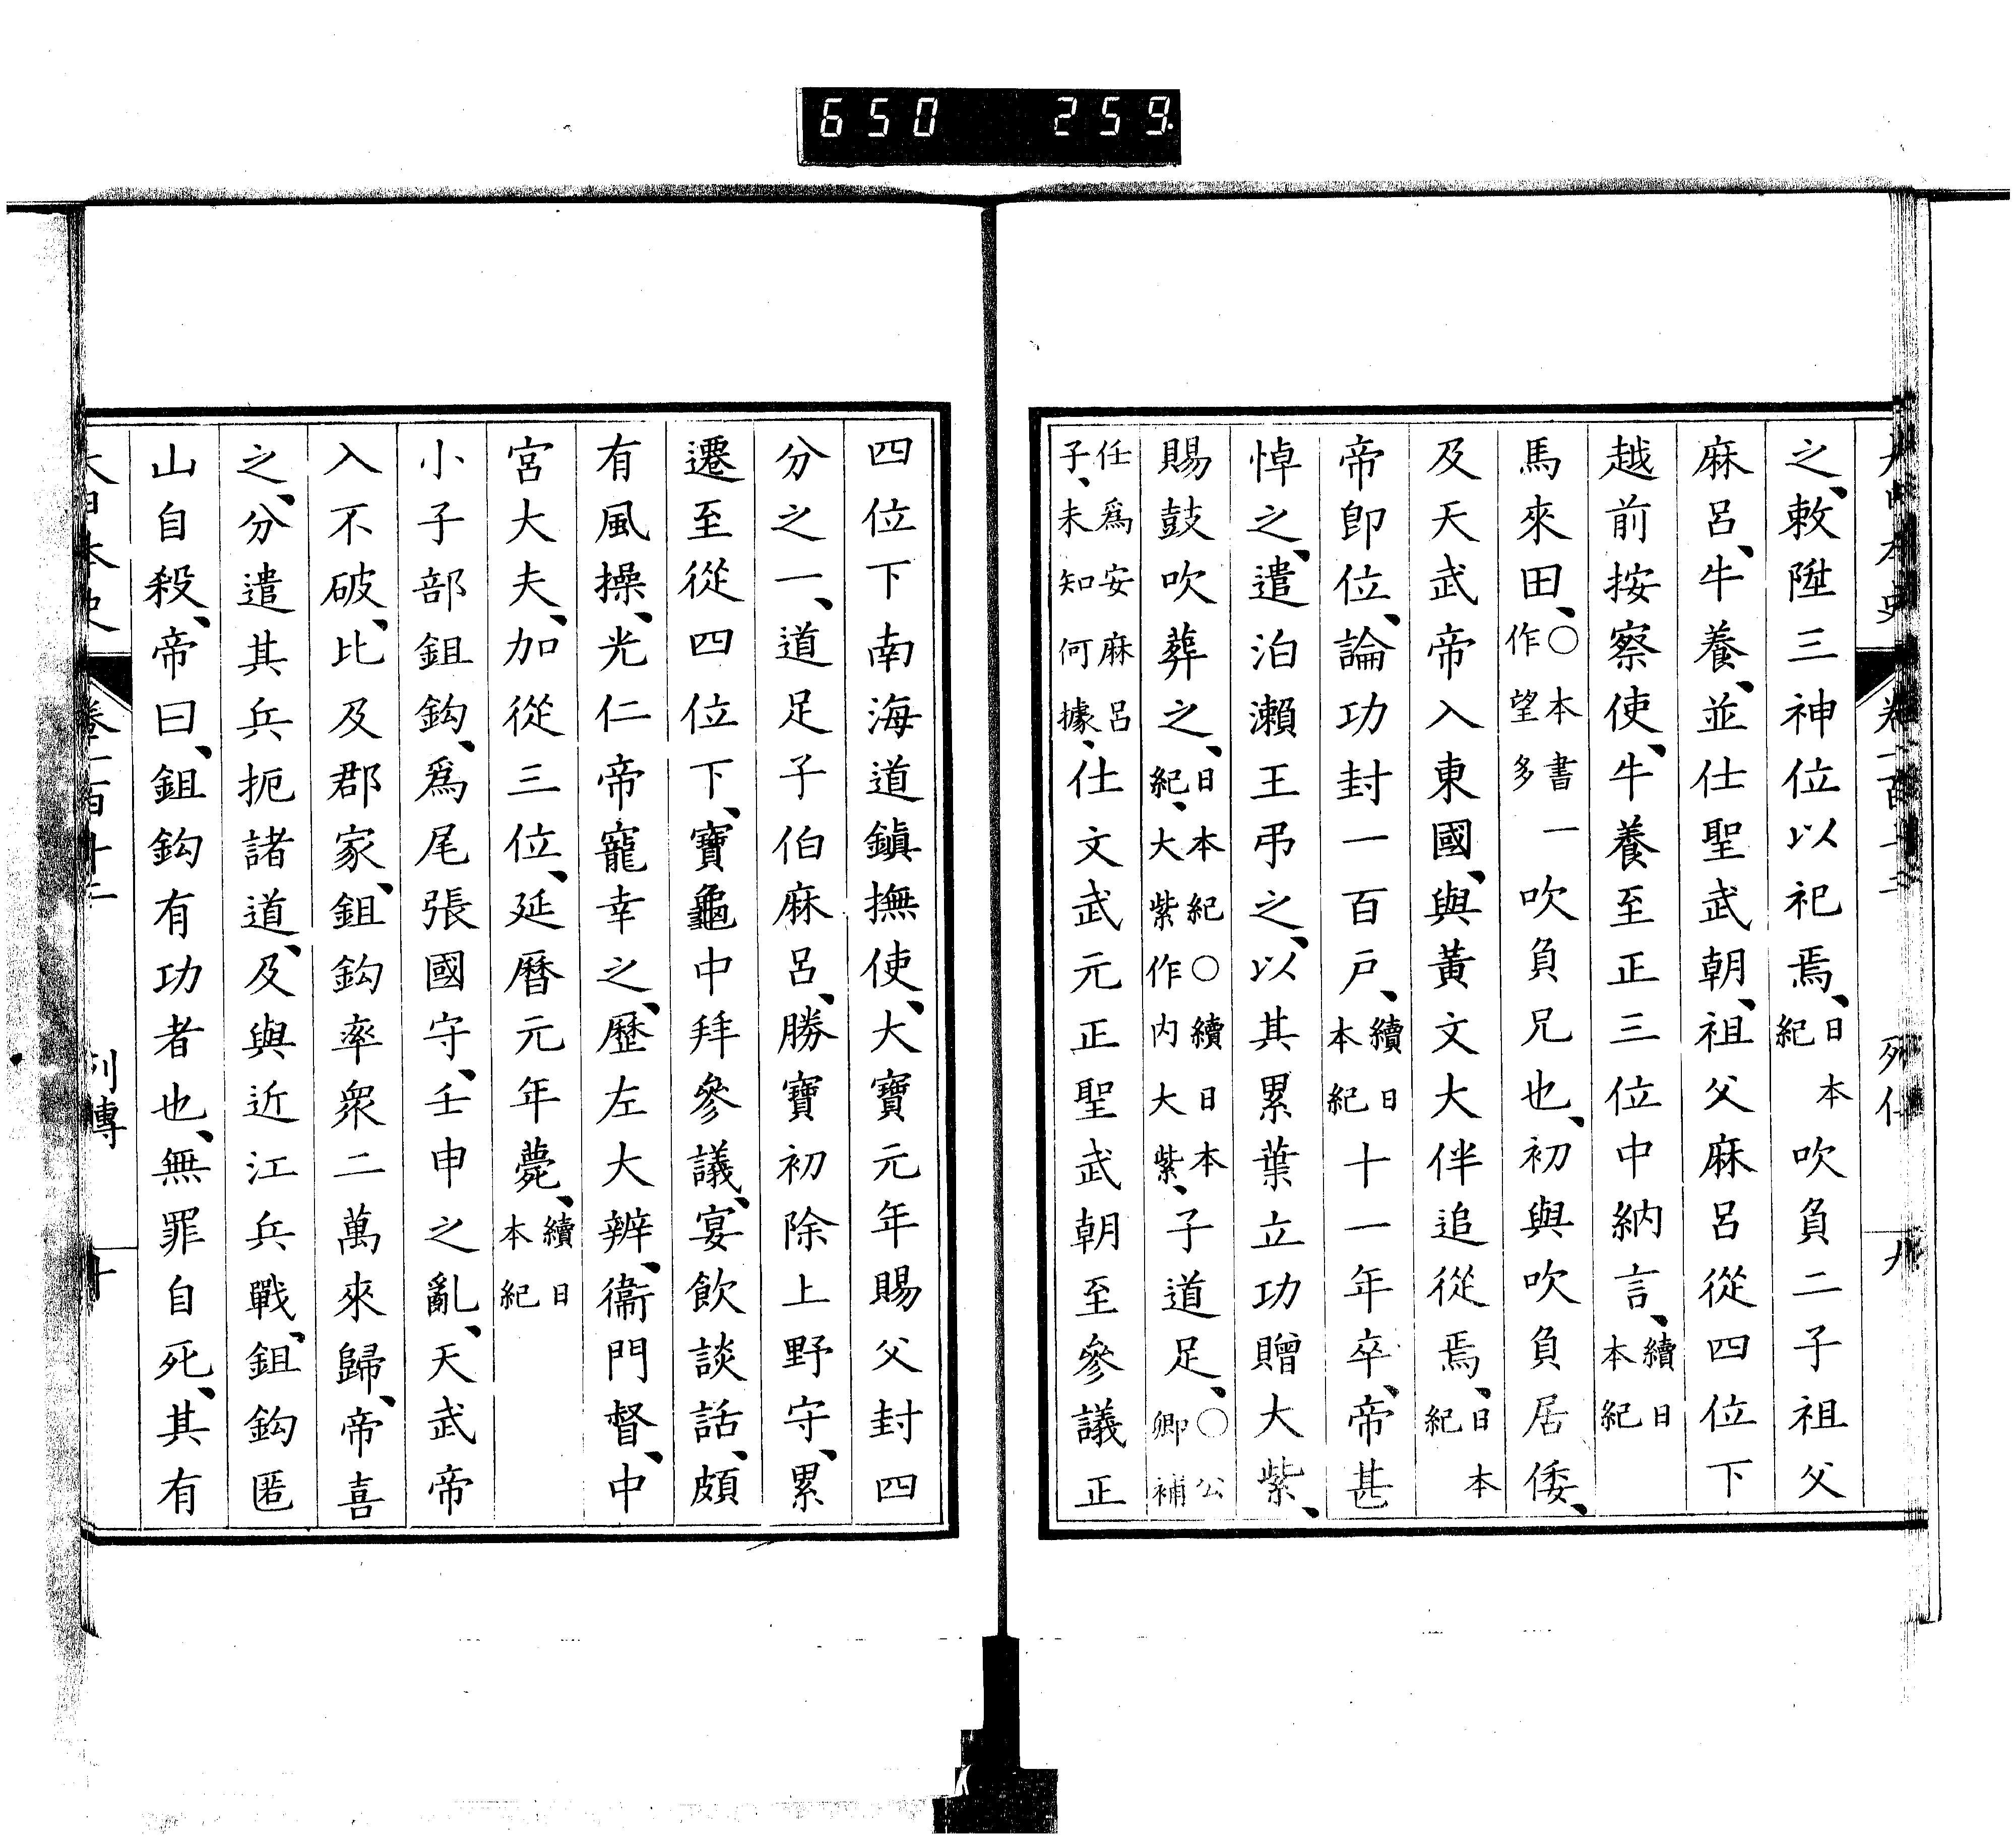 650 259
之、敕陞三神位以祀焉、日本紀吹負二子祖父
麻呂、牛養、並仕聖武朝、祖父麻呂從四位下
越前按察使、牛養至正三位中納言、續日本紀
馬來田、○本書一作望多吹負兄也、初與吹負居倭、
及天武帝入東國、與黃文大伴追從焉、日本紀
帝卽位、論功封一百戶、續日本紀十一年卒、帝甚
悼之、遣泊瀨王弔之、以其累葉立功贈大紫、
賜鼓吹葬之、日本紀○續日本紀、大紫作內大紫、子道足、○公卿補
任爲安麻呂子、未知何據、仕文武元正聖武朝至參議正
四位下南海道鎭撫使、大寶元年賜父封四
分之一、道足子伯麻呂、勝寶初除上野守、累
遷至從四位下、寶龜中拜參議、宴飮談話、頗
有風操、光仁帝寵幸之、歷左大辨、衞門督、中
宮大夫、加從三位、延曆元年薨、續日本紀
小子部鉏鈎、爲尾張國守、壬申之亂、天武帝
入不破、比及郡家、鉏鈎率衆二萬來歸、帝喜
之、分遣其兵扼諸道、及與近江兵戰、鉏鈎匿
山自殺、帝曰、鉏鈎有功者也、無罪自死、其有
列傳